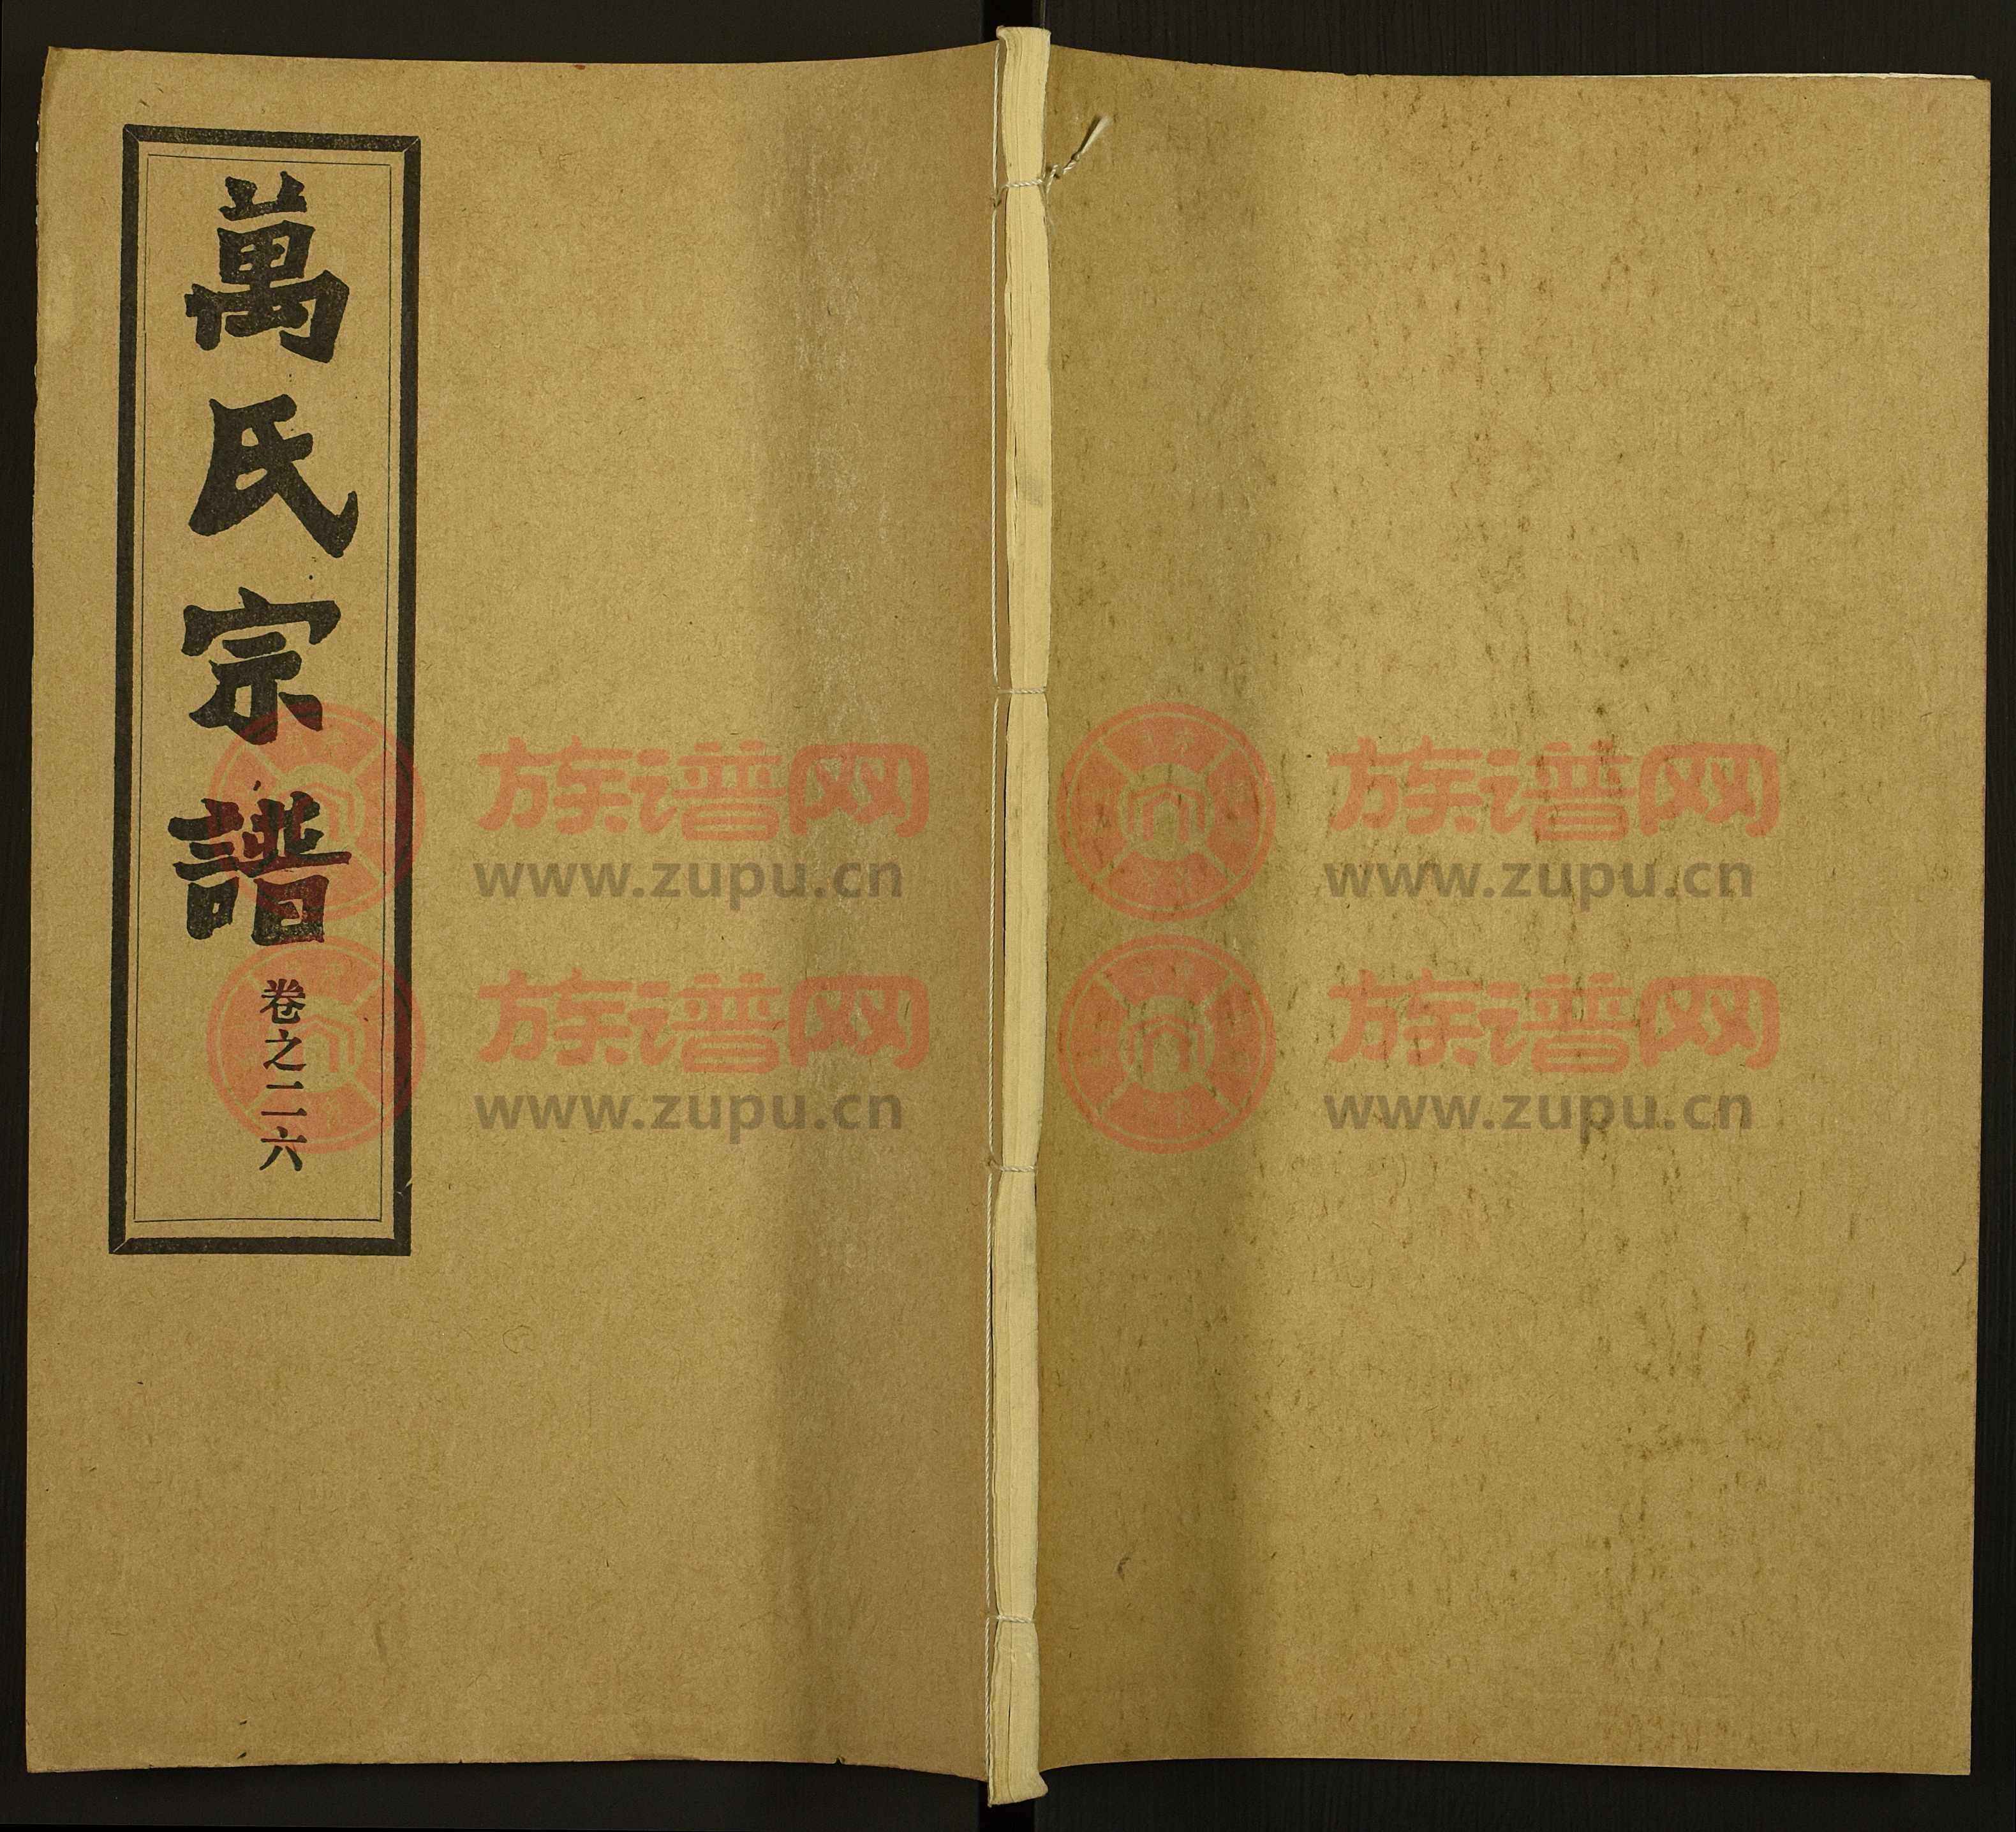 萬氏宗譜
卷之二六
族谱网
www.zupu.cn
族谱网
www.zupu.cn
族谱网
www.zupu.cn
族谱网
www.zupu.cn